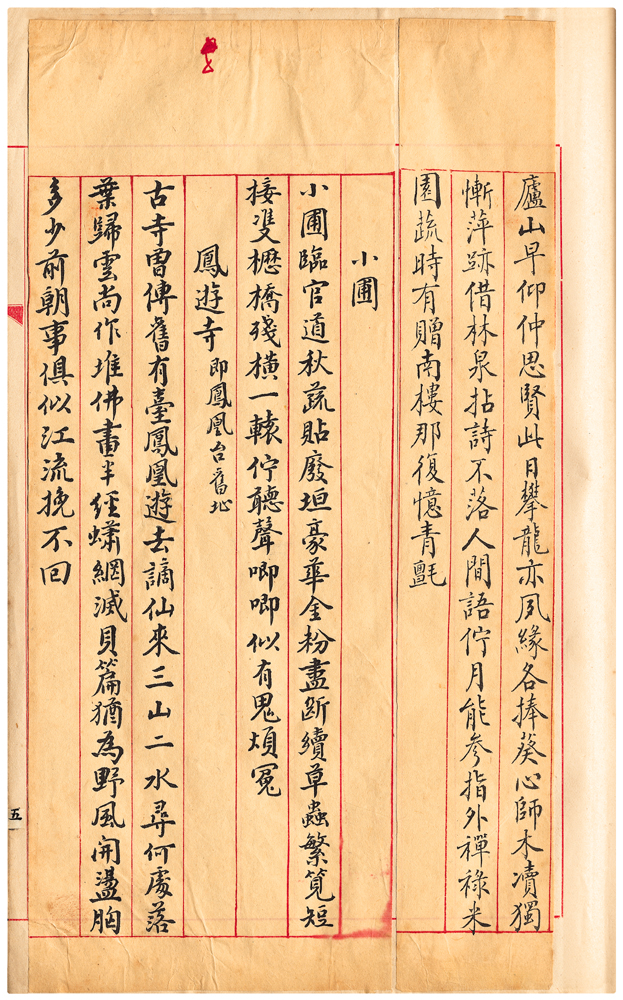 廬山早仰仲思賢此日攀龍亦夙緣各捧葵心師木瀆獨
慚萍跡借林泉拈詩不落人間語佇月能參指外禪祿米
園蔬時有贈南樓那復憶青氈
小圃
小圃臨官道秋蔬貼廢垣豪華金粉盡斷續草蟲繁筧短
接雙櫪橋殘橫一轅佇聽聲唧唧似有鬼煩冤
鳳遊寺 即鳳凰台舊址
古寺曾傳舊有臺鳳凰遊去謫仙來三山二水尋何處落
葉歸雲尚作堆佛畫半經蠨網滅貝篇猶為野風開盪胸
多少前朝事俱似江流挽不回
五